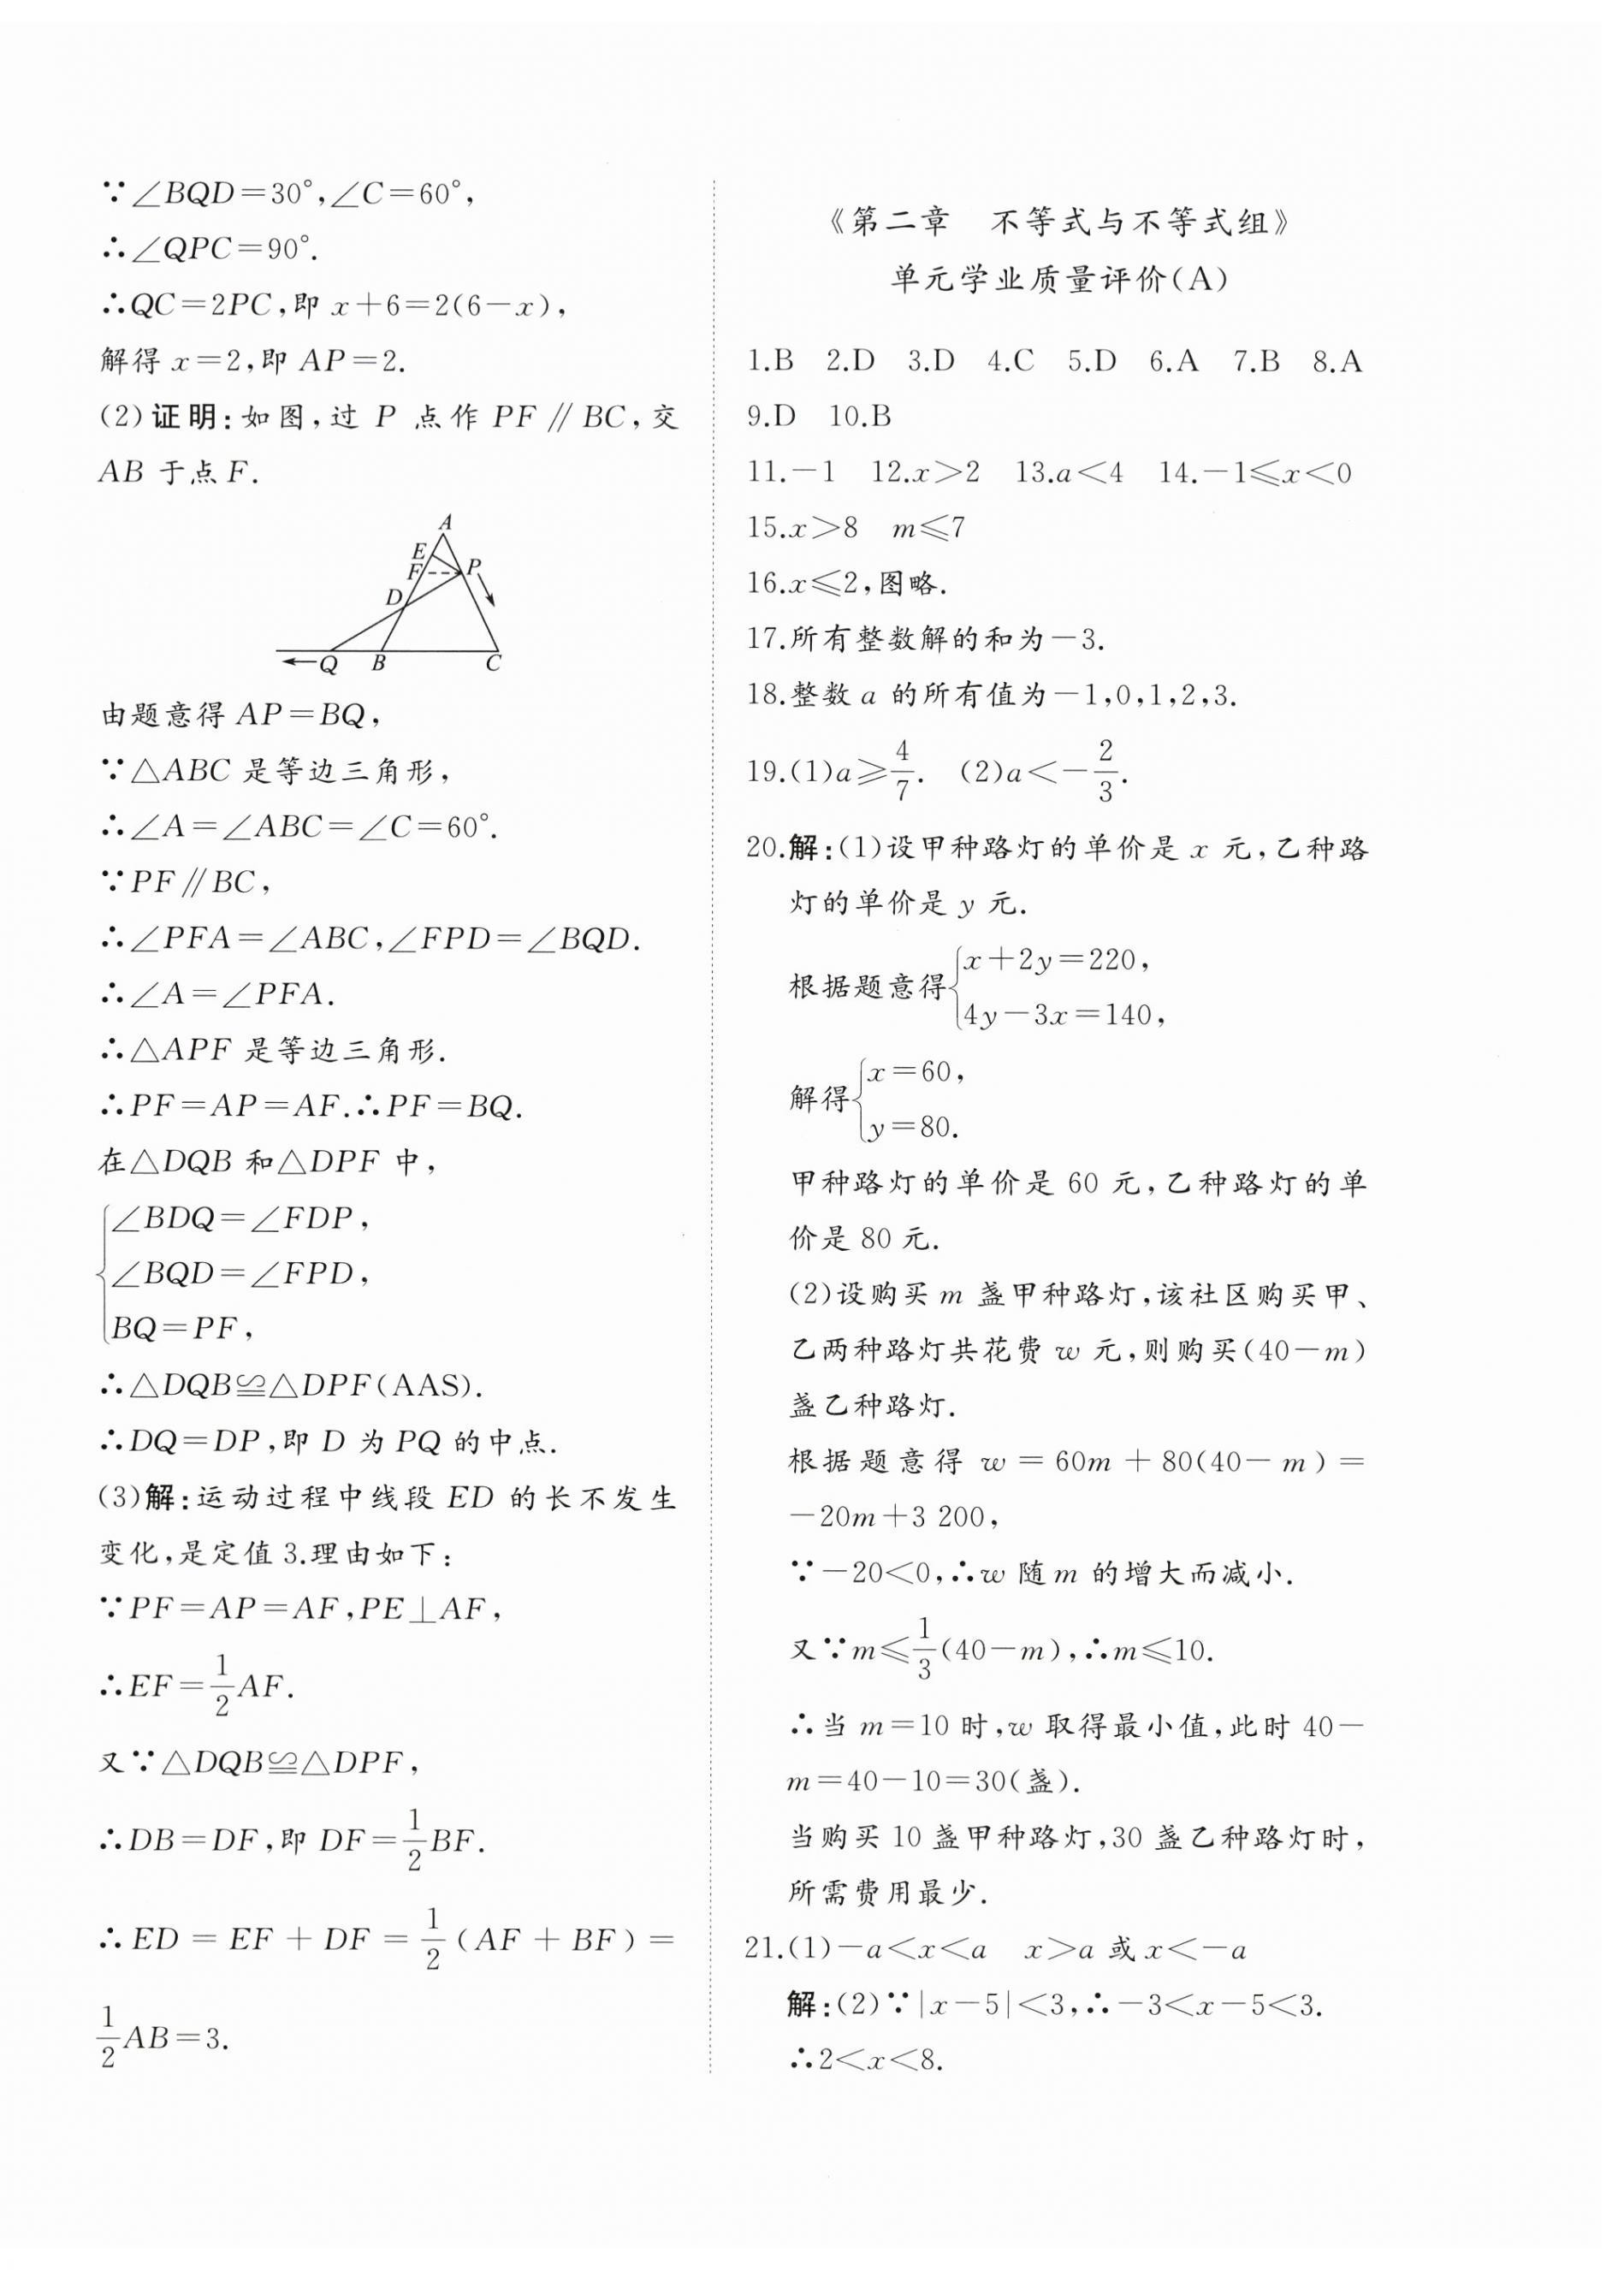 ∵∠BQD=30°,∠C=60°,
∴∠QPC=90°.
∴QC=2PC,即 x+6=2(6-x),
解得 x=2,即 AP=2.
(2)证明:如图,过 P 点作 PF∥BC,交
AB 于点F.
A
E
F
P
D
Q
B
C
由题意得 AP=BQ,
∵△ABC 是等边三角形,
∴∠A=∠ABC=∠C=60°.
∵PF∥BC,
∴∠PFA=∠ABC,∠FPD=∠BQD.
∴∠A=∠PFA.
∴△APF 是等边三角形.
∴PF=AP=AF.∴PF=BQ.
在△DQB 和△DPF 中,
∠BDQ=∠FDP,
∠BQD=∠FPD,
BQ=PF,
∴△DQB≌△DPF(AAS).
∴DQ=DP,即 D 为 PQ 的中点.
(3)解:运动过程中线段 ED 的长不发生
变化,是定值 3.理由如下:
∵PF=AP=AF,PE⊥AF,
∴EF=1/2AF.
又∵△DQB≌△DPF,
∴DB=DF,即 DF=1/2BF.
∴ED=EF+DF=1/2(AF+BF)=
1/2AB=3.
《第二章 不等式与不等式组》
单元学业质量评价(A)
1.B 2.D 3.D 4.C 5.D 6.A 7.B 8.A
9.D 10.B
11.-1 12.x>2 13.a<4 14.-1≤x<0
15.x>8 m≤7
16.x≤2,图略.
17.所有整数解的和为-3.
18.整数 a 的所有值为-1,0,1,2,3.
19.(1)a≥4/7. (2)a<-2/3.
20.解:(1)设甲种路灯的单价是 x 元,乙种路
灯的单价是 y 元.
根据题意得{x+2y=220,
4y-3x=140,
解得{x=60,
y=80.
甲种路灯的单价是 60 元,乙种路灯的单
价是 80 元.
(2)设购买 m 盏甲种路灯,该社区购买甲、
乙两种路灯共花费 w 元,则购买(40-m)
盏乙种路灯.
根据题意得 w=60m+80(40-m)=
-20m+3 200,
∵-20<0,∴w 随 m 的增大而减小.
又∵m≤1/3(40-m),∴m≤10.
∴当 m=10 时,w 取得最小值,此时 40-
m=40-10=30(盏).
当购买 10 盏甲种路灯,30 盏乙种路灯时,
所需费用最少.
21.(1)-a<x<a x>a 或 x<-a
解:(2)∵|x-5|<3,∴-3<x-5<3.
∴2<x<8.